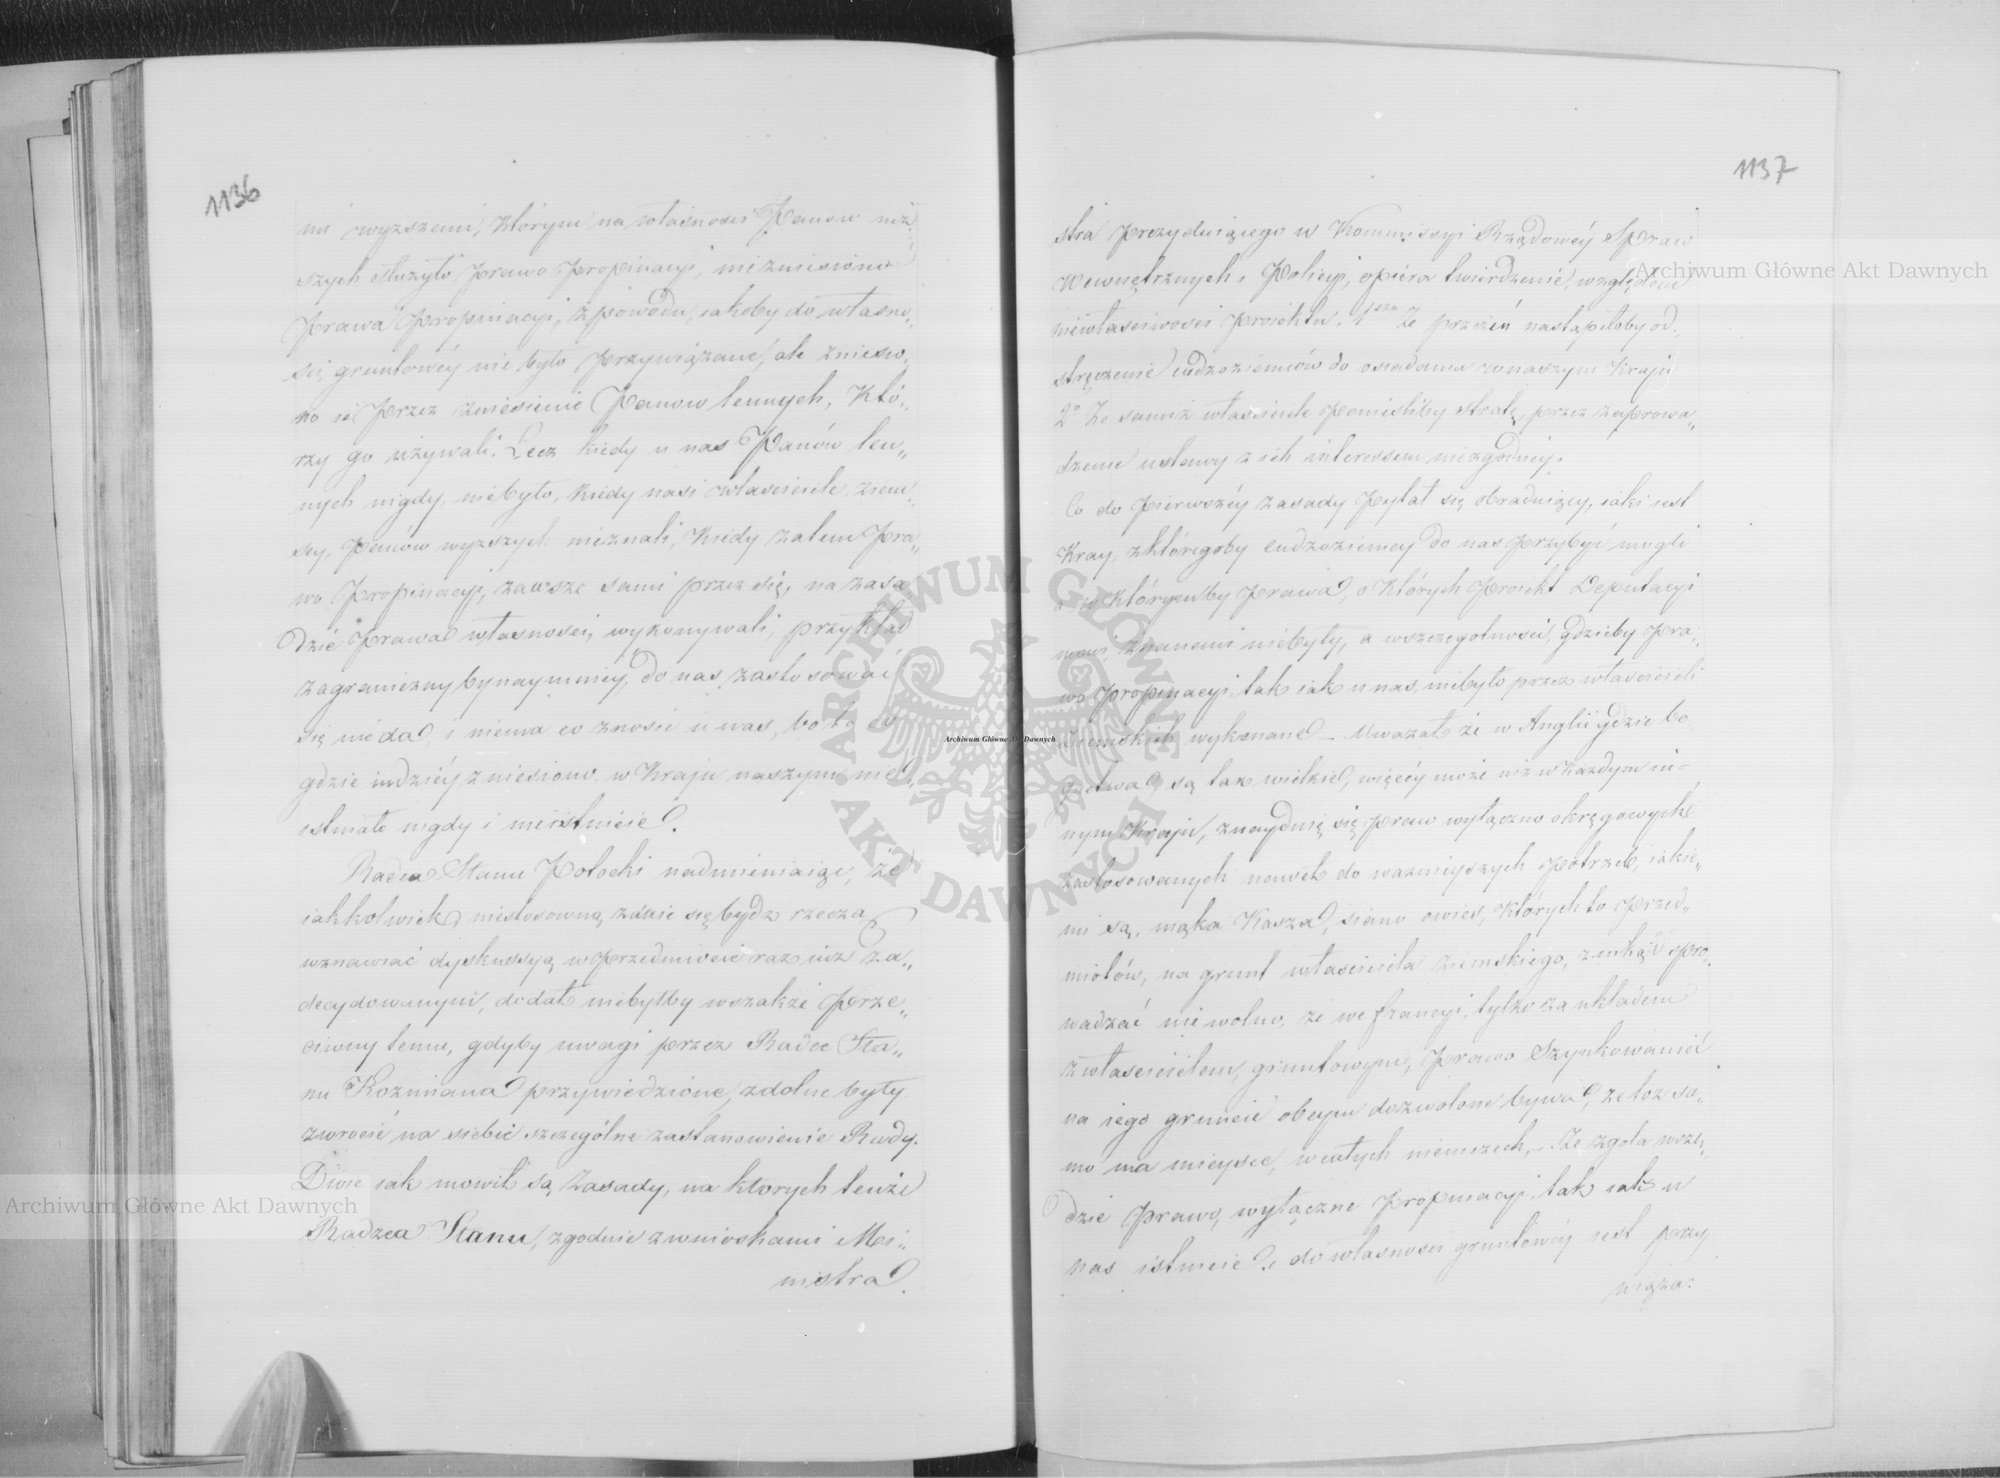 1136
mi wyższemi, którym na własnosci Panow niż„
szych służyło prawo Propinacyi, nie zniesiono
Prawa Propinacyi, z powodu, iakoby do własno„
sci, gruntowéy nie było przywiązane, ale zniesio„
no ie przez zniesienie Panow lennych, Któ„
rzy go używali. Lecz kiedy u nas Panów len„
nych nigdy niebyło, kiedy nasi własciciele ziem„
scy, Panów wyższych nieznali, kiedy zatem Pra„
wo Propinacyi, zawsze sami przez się, na zasa„
dzie Prawa własnosci, wykonywali, przykład
zagraniczny bynaymniéy do nas zastosować
się nieda, i niema co znosić u nas, bo to co
gdzie indziéy zniesiono w Kraju naszym nie„
istniało nigdy i nieistnieie.
Radca Stanu Potocki nadmieniaiąc, że
iakkolwiek niestosowną zdaie się bydz rzeczą
wznawiać dyskussyą w przedmiocie raz iuż za„
decydowanym, dodał niebyłby wszakże prze„
ciwny temu, gdyby uwagi przez Radcę Sta„
nu Kozmiana przywiedzione, zdolne były
zwrocić na siebie szczególne zastanowienie Rady.
Dwie iak mowił są zasady, na ktorych tenże
Radzca Stanu, zgodnie z wnioskami Mi„
nistra.
1137
stra prezyduiącego w Kommissyi Rządowéy Spraw
Wewnętrznych i Policyi, opiéra twierdzenie, względem
niewłasciwosci proiektu. 1sza Ze przezeń nastąpiłoby od„
stręczenie cudzoziemców do osiadania w naszym Kraju
2o Ze samiż własciciele ponieśliby stratę, przez zaprowa„
dzenie ustawy z ich interessem niezgodnéy.
Co do pierwszéy zasady Pytał się obraduiący, iaki iest
Kray, z któregoby cudzoziemcy do nas przybyć mogli
a w którymby prawa, o których Proiekt Deputacyi
mowi, znanemi niebyły, a wszczegolnosci, gdzieby pra„
wo propinacyi, tak iak u nas, niebyło przez własciscieli
ziemskich wykonane — Uważał że w Anglii gdzie bo„
gactwa są tak wielkie, więcéy może niż w każdym in„
nym Kraju, znayduie się praw wyłączno okręgowych
zastosowanych nawet do ważnieyszych potrzeb, iakie„
mi są, mąka Kasza, siano owies, których to przed„
miotów, na grunt własciciela ziemskiego, zinkąd spro„
wadzać nie wolno, że we francyi, tylko za układem
z własścicielem, gruntowym, prawo Szynkowania
na iego gruncie obcym dozwolone bywa, że toż sa„
mo ma mieysce, w całych niemczech, — Ze zgoła wszę„
dzie prawo, wyłączne Propinacyi, tak iak u
nas istnieie i do własnosci gruntowéy iest przy
wiąza:
Archiwum Główne Akt Dawnych
Archiwum Główne Akt Dawnych
Archiwum Główne Akt Dawnych
ARCHIWUM GŁÓWNE AKT DAWNYCH